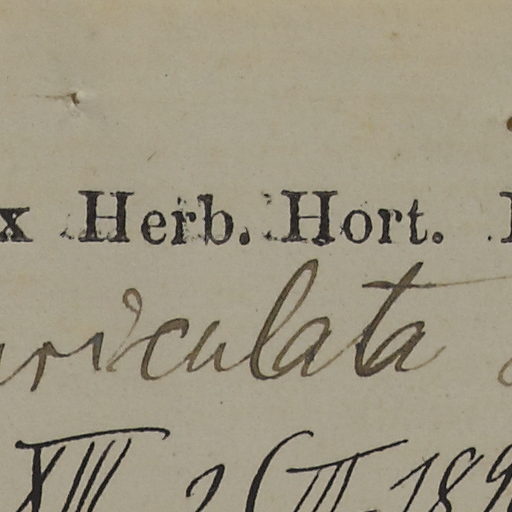 x Herb. Hort.
uriculata
XIII 2 (III 189